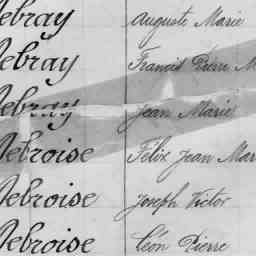 ebray Auguste Marie
ebray Francis Pierre M
ebray Jean Marie
ebroise Félix Jean Mar
ebroise Joseph Victor
ebroise Léon Pierre